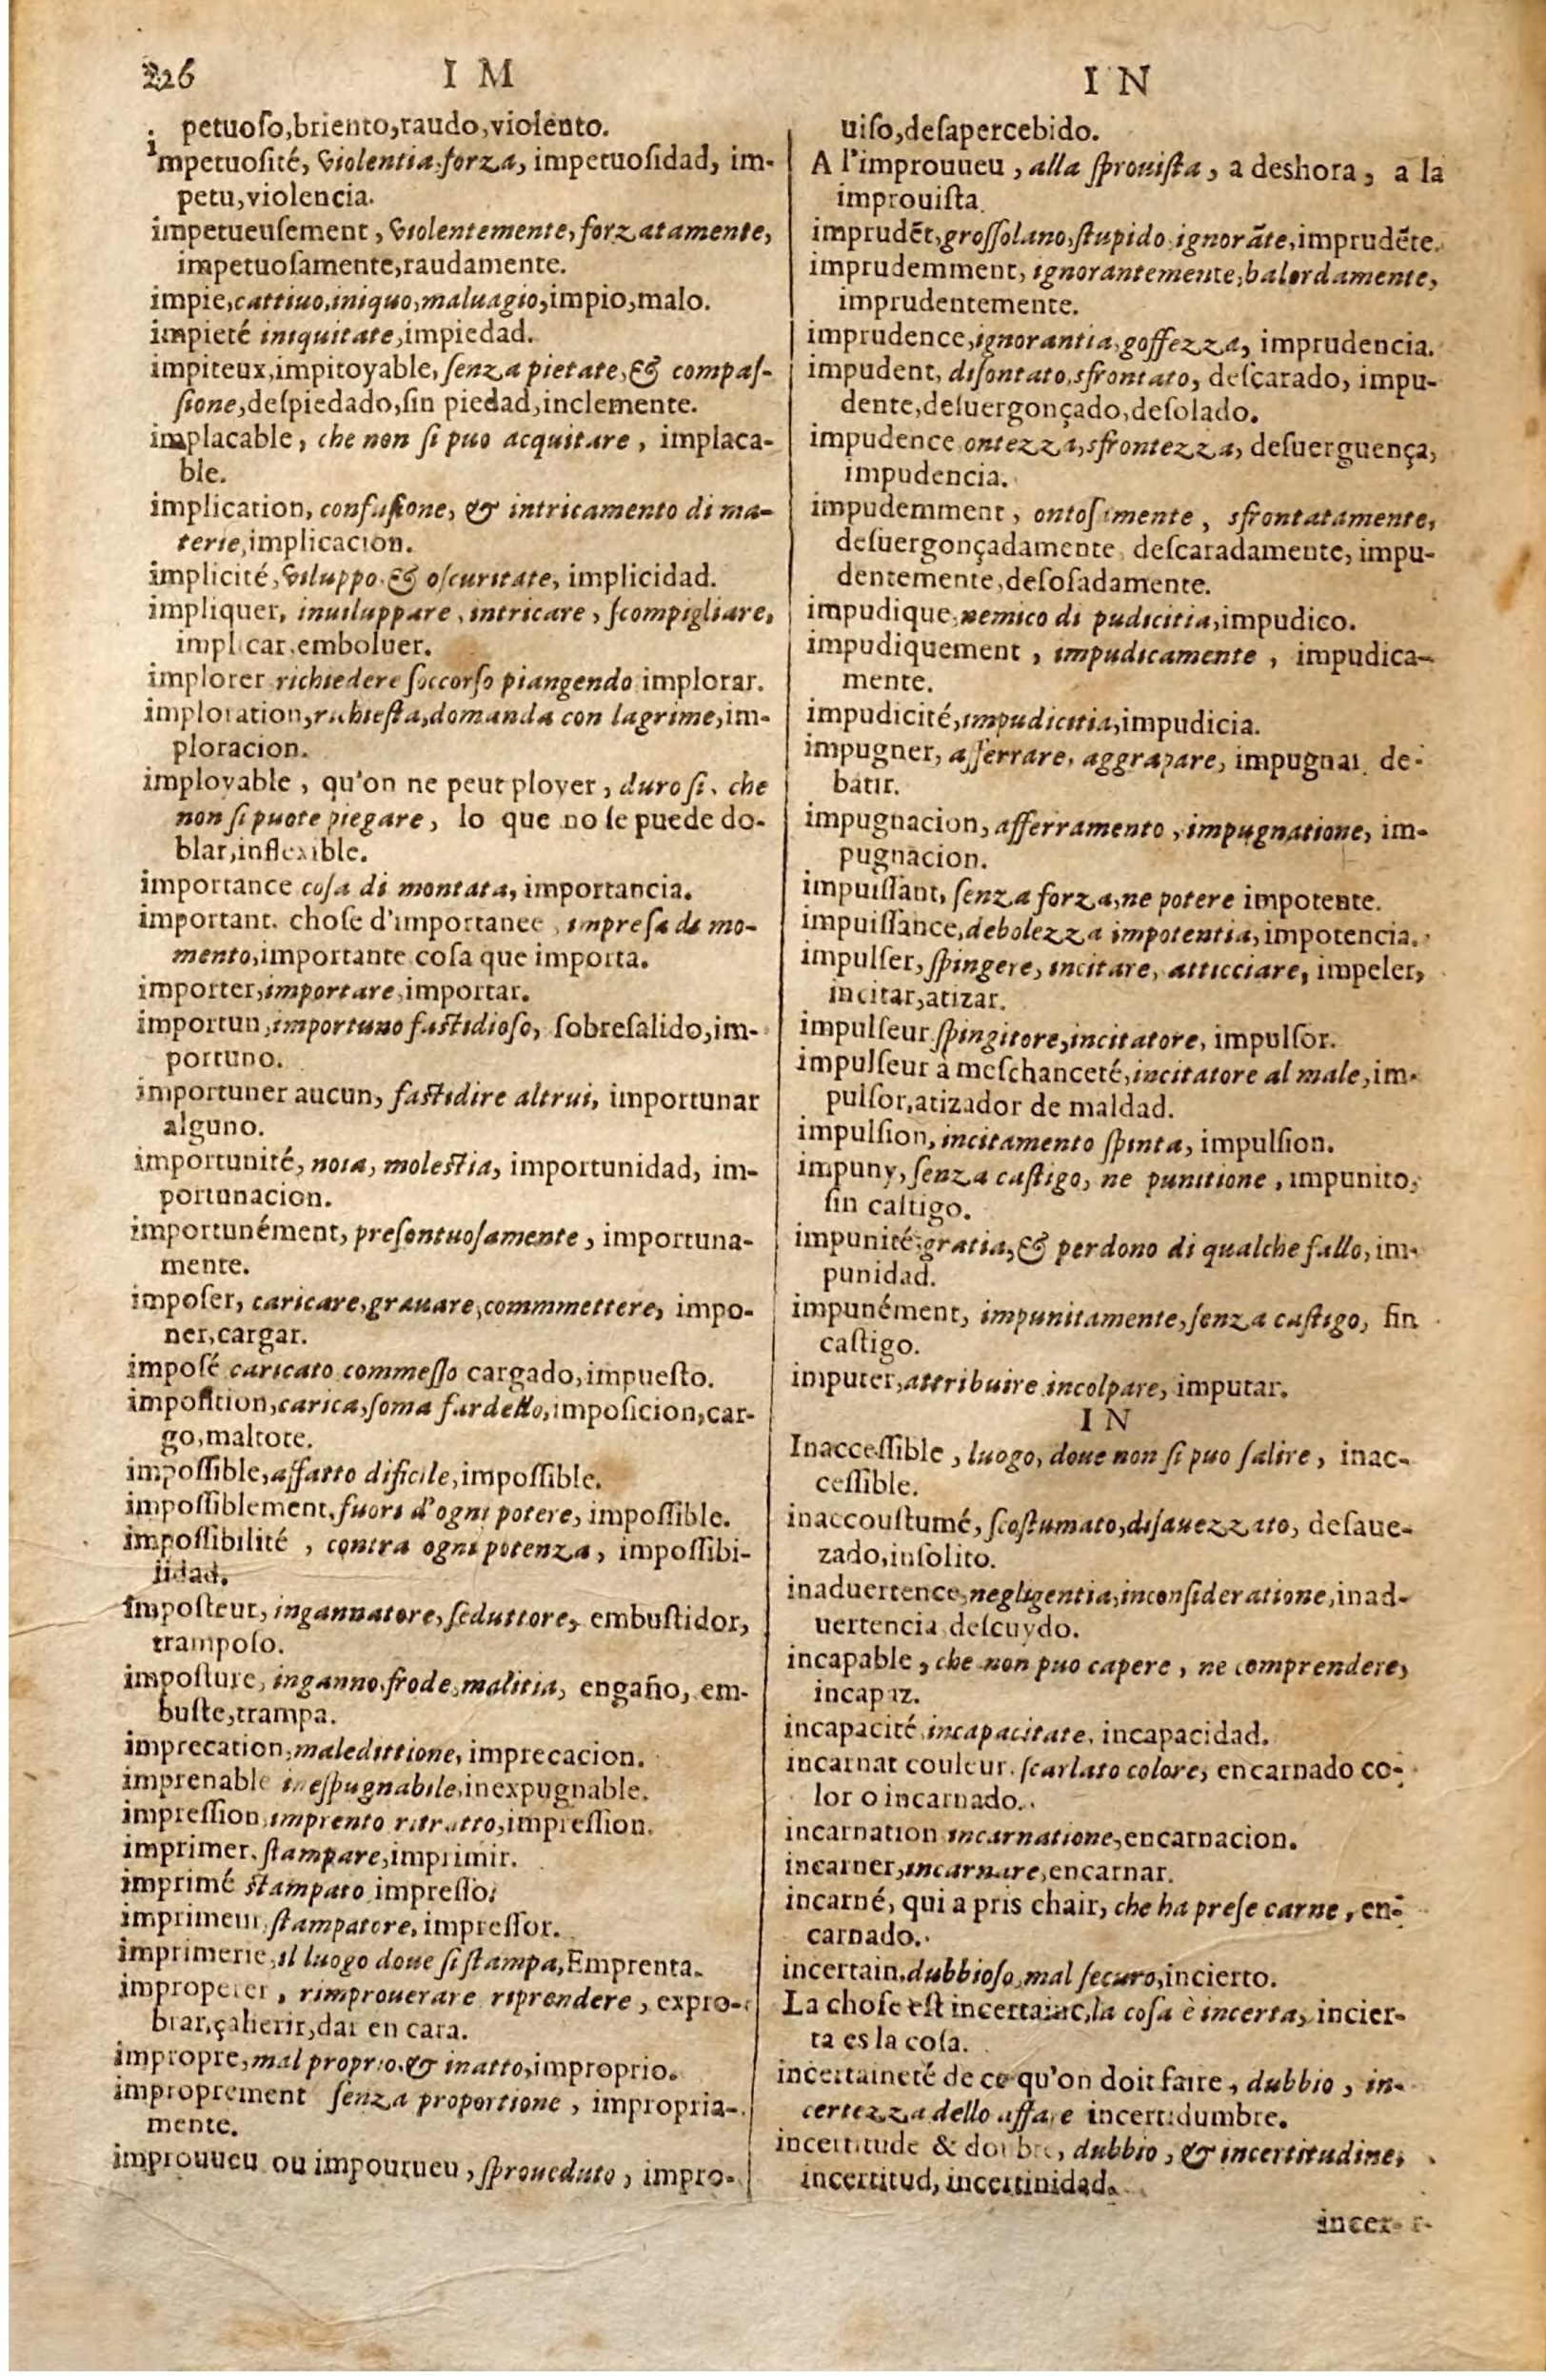 226 I M
petuoſo,briento,raudo,violento.
impetuoſité, violentia,forza, impetuoſidad, im-
petu,violencia.
impetueuſement, violentemente, forzatamente,
impetuoſamente,raudamente.
impie,cattiuo,iniquo,maluagio,impio,malo.
impieté iniquitate,impiedad.
impiteux,impitoyable, ſenza pietate,& compaſ-
ſione,deſpiedado,ſin piedad,inclemente.
implacable, che non ſi puo acquitare, implaca-
ble.
implication, confuſione, & intricamento di ma-
terie,implicacion.
implicité, viluppo.& oſcuritate, implicidad.
impliquer, inuiluppare, intricare, ſcompigliare,
implicar,emboluer.
implorer richiedere ſoccorſo piangendo implorar.
imploration,richieſta,domanda con lagrime,im-
ploracion.
imployable, qu'on ne peut ployer, duro ſi, che
non ſi puote piegare, lo que no ſe puede do-
blar,inflexible.
importance coſa di montata, importancia.
important. choſe d'importance, impreſa di mo-
mento,importante coſa que importa.
importer,importare,importar.
importun,importuno faſtidioſo, ſobreſalido,im-
portuno.
importuner aucun, faſtidire altrui, importunar
alguno.
importunité, noia, moleſtia, importunidad, im-
portunacion.
importunément, preſontuoſamente, importuna-
mente.
impoſer, caricare,grauare,commmettere, impo-
ner,cargar.
impoſé caricato commeſſo cargado,impueſto.
impoſition,carica,ſoma fardello,impoſicion,car-
go,maltote.
impoſſible,affatto dificile,impoſſible.
impoſſiblement,fuori d'ogni potere, impoſſible.
impoſſibilité, contra ogni potenza, impoſſibi-
lidad.
Impoſteur, ingannatore, ſeduttore, embuſtidor,
trampoſo.
impoſture, inganno,frode,malitia, engaño, em-
buſte,trampa.
imprecation,maledittione, imprecacion.
imprenable ineſpugnabile,inexpugnable.
impreſſion,imprento ritratto,impreſſion.
imprimer, ſtampare,imprimir.
imprimé ſtampato impreſſo.
imprimeur,ſtampatore, impreſſor.
imprimerie,il luogo doue ſi ſtampa,Emprenta.
improperer, rimprouerare riprendere, expro-
brar,çaherir,dar en cara.
impropre,mal proprio.& inatto,improprio.
improprement ſenza proportione, impropria-
mente.
improuueu ou impourueu, ſproueduto, impro-
I N
uiſo,deſapercebido.
A l'improuueu, alla ſprouiſta, a deshora, a la
improuiſta.
imprudēt,groſſolano,ſtupido ignorāte,imprudēte.
imprudemment, ignorantemente,balordamente,
imprudentemente.
imprudence,ignorantia,goffezza, imprudencia.
impudent, diſontato,sfrontato, deſcarado, impu-
dente,deſuergonçado,deſolado.
impudence ontezza,sfrontezza, deſuerguença,
impudencia.
impudemment, ontoſamente, sfrontatamente,
deſuergonçadamente, deſcaradamente, impu-
dentemente,deſoſadamente.
impudique,nemico di pudicitia,impudico.
impudiquement, impudicamente, impudica-
mente.
impudicité,impudicitia,impudicia.
impugner, afferrare, aggrapare, impugnar de-
batir.
impugnacion, afferramento, impugnatione, im-
pugnacion.
impuiſſant, ſenza forza,ne potere impotente.
impuiſſance,debolezza impotentia,impotencia.
impulſer, ſpingere, incitare, atticciare, impeler,
incitar,atizar.
impulſeur ſpingitore,incitatore, impulſor.
impulſeur à meſchanceté,incitatore al male,im-
pulſor,atizador de maldad.
impulſion, incitamento ſpinta, impulſion.
impuny, ſenza caſtigo, ne punitione, impunito,
ſin caſtigo.
impunité,gratia,& perdono di qualche fallo, im-
punidad.
impunément, impunitamente, ſenza caſtigo, ſin
caſtigo.
imputer,attribuire incolpare, imputar.
I N
Inacceſſible, luogo, doue non ſi puo ſalire, inac-
ceſſible.
inaccouſtumé, ſcoſtumato,diſauezzato, deſaue-
zado,inſolito.
inaduertence,negligentia,inconſideratione,inad-
uertencia deſcuydo.
incapable, che non puo capere, ne comprendere,
incapaz.
incapacité,incapacitate, incapacidad.
incarnat couleur. ſcarlato colore, encarnado co-
lor o incarnado.
incarnation incarnatione,encarnacion.
incarner,incarnare,encarnar.
incarné, qui a pris chair, che ha preſe carne, en-
carnado.
incertain,dubbioſo,mal ſecuro,incierto.
La choſe eſt incertaine,la coſa è incerta, incier-
ta es la coſa.
incertaineté de ce qu'on doit faire, dubbio, in-
certezza dello affare incertidumbre.
incertitude & doubte, dubbio, & incertitudine,
incertitud, incertinidad.
incer-